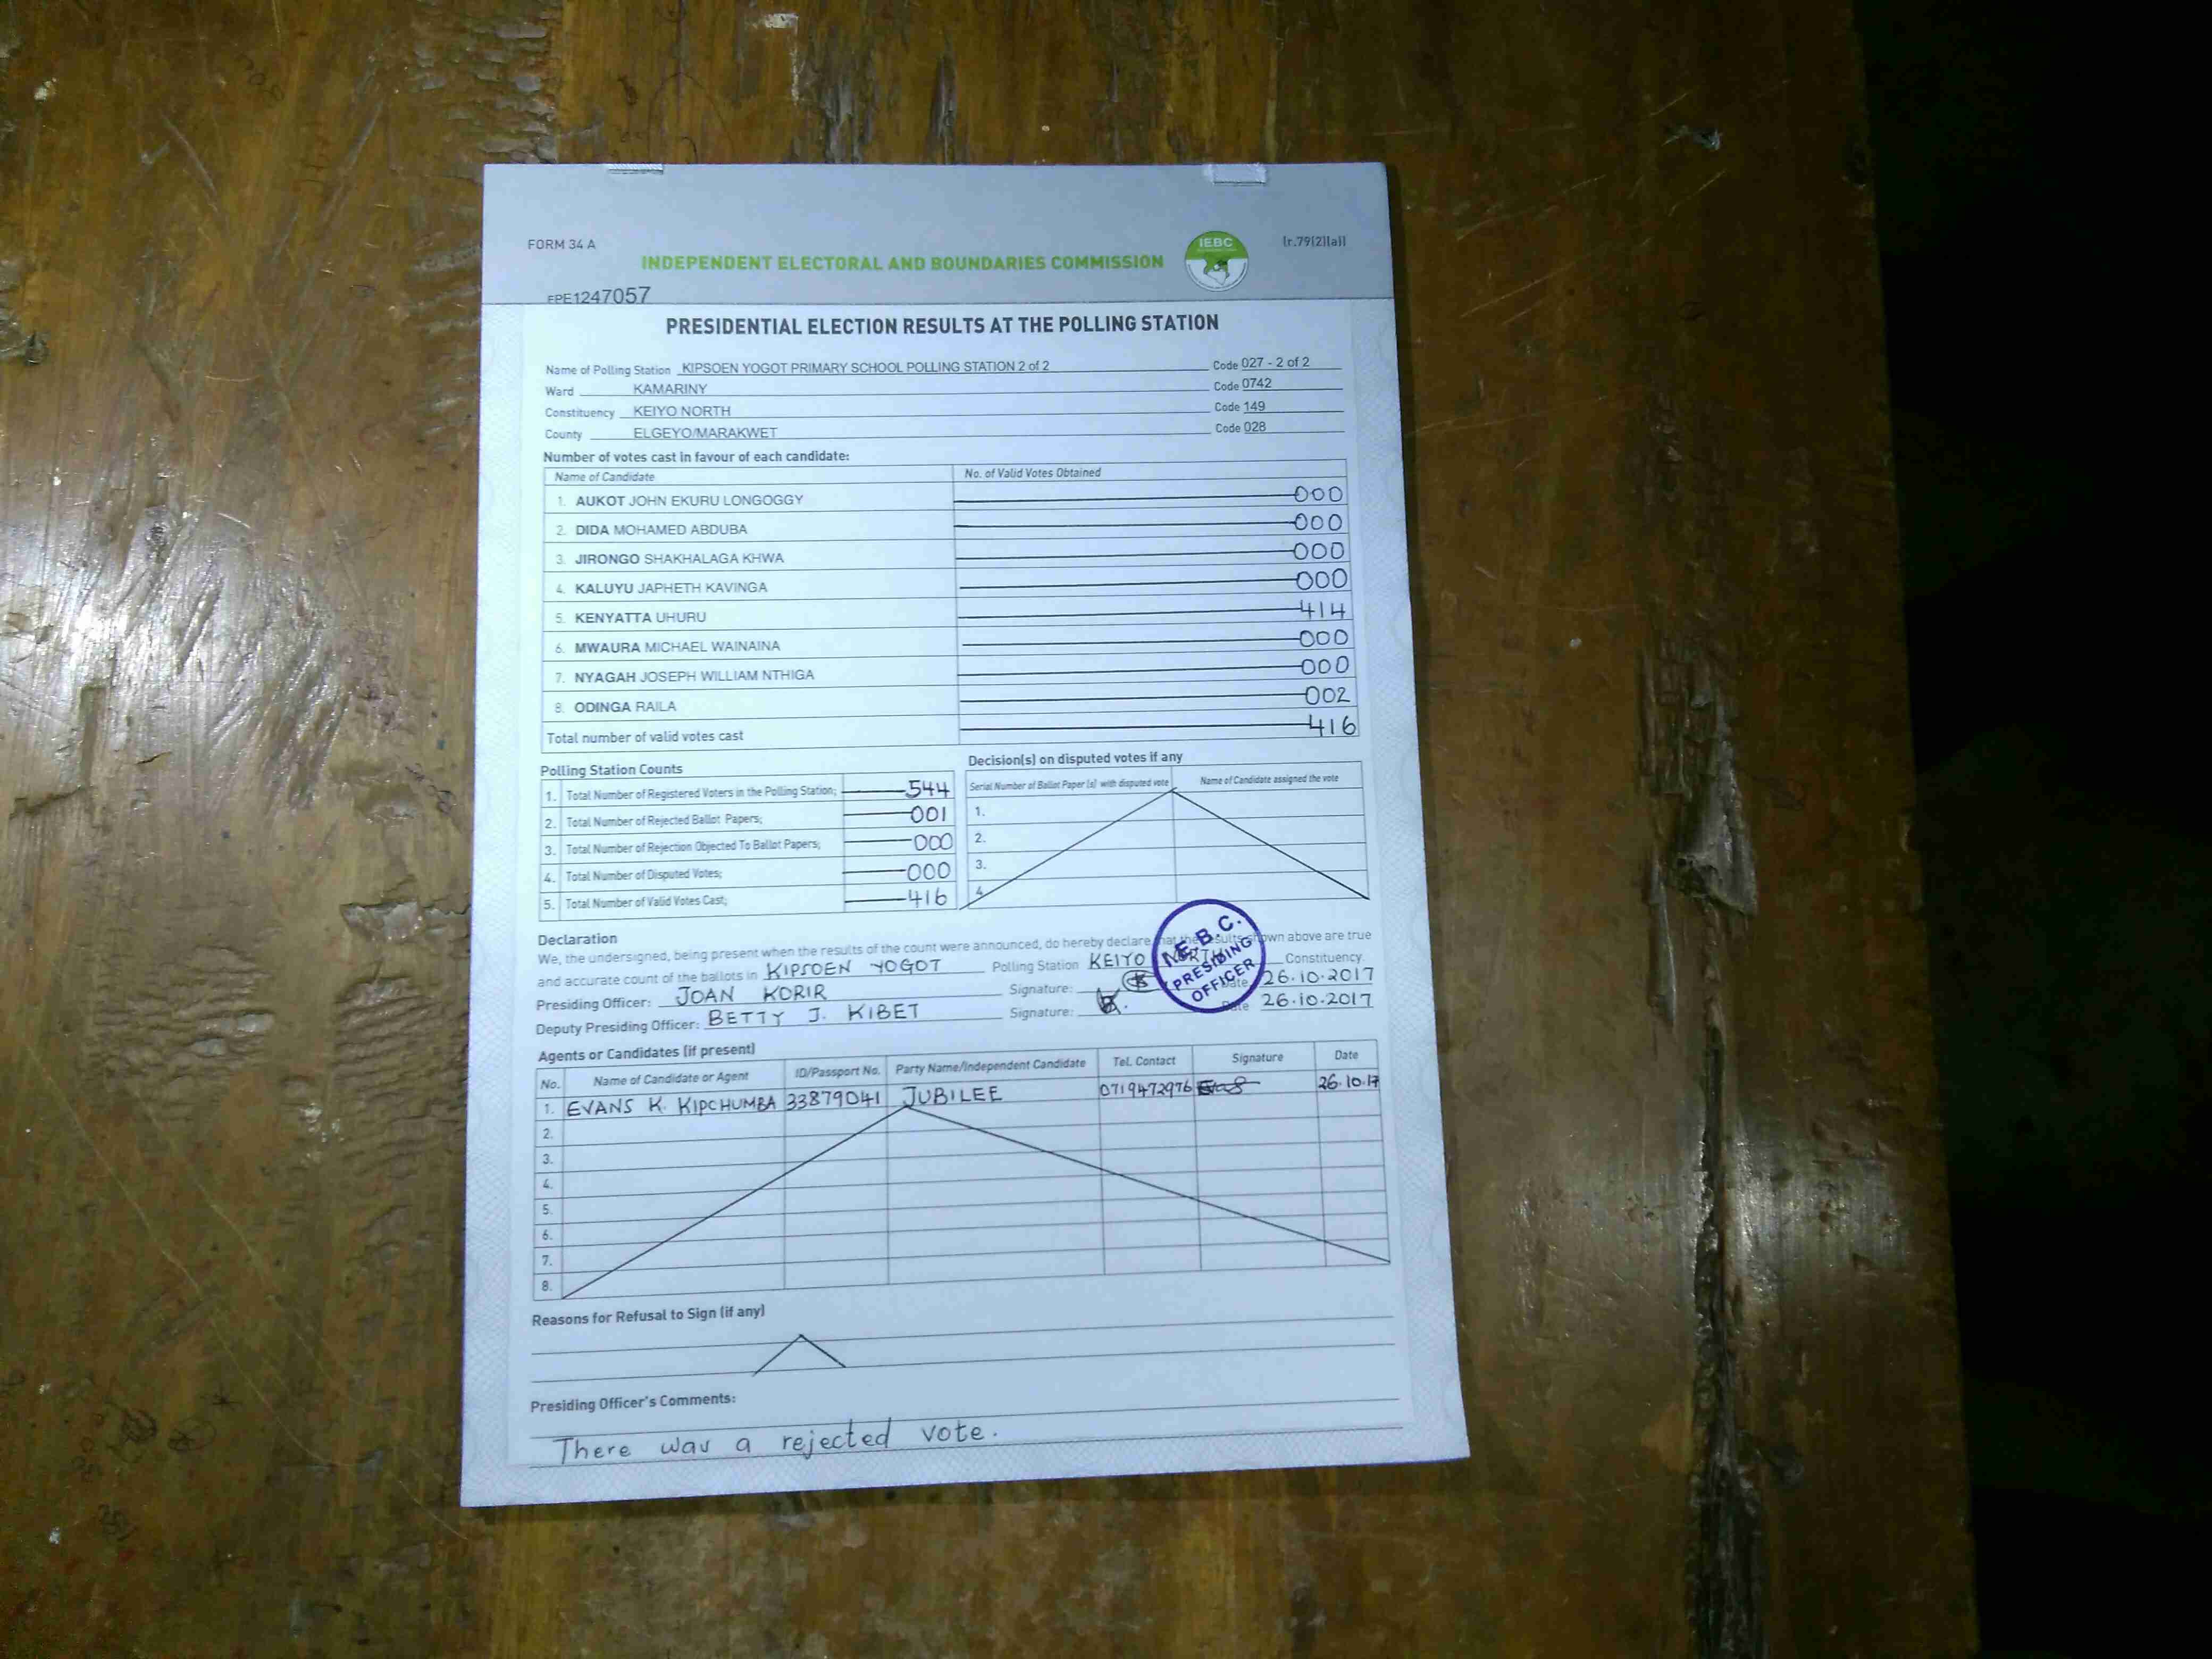 FORM 34 A
INDEPENDENT ELECTORAL AND BOUNDARIES COMMISSION
IEBC
(r.79(2)(a))
EPE1247057
PRESIDENTIAL ELECTION RESULTS AT THE POLLING STATION
Name of Polling Station KIPSOEN YOGOT PRIMARY SCHOOL POLLING STATION 2 of 2 Code 027 - 2 of 2
Ward KAMARINY Code 0742
Constituency KEIYO NORTH Code 149
County ELGEYO/MARAKWET Code 028
Number of votes cast in favour of each candidate:
Name of Candidate No. of Valid Votes Obtained
1. AUKOT JOHN EKURU LONGOGGY 000
2. DIDA MOHAMED ABDUBA 000
3. JIRONGO SHAKHALAGA KHWA 000
4. KALUYU JAPHETH KAVINGA 000
5. KENYATTA UHURU 414
6. MWAURA MICHAEL WAINAINA 000
7. NYAGAH JOSEPH WILLIAM NTHIGA 000
8. ODINGA RAILA 002
Total number of valid votes cast 416
Polling Station Counts
1. Total Number of Registered Voters in the Polling Station; 544
2. Total Number of Rejected Ballot Papers; 001
3. Total Number of Rejection Objected To Ballot Papers; 000
4. Total Number of Disputed Votes; 000
5. Total Number of Valid Votes Cast; 416
Decision(s) on disputed votes if any
Serial Number of Ballot Paper (s) with disputed vote Name of Candidate assigned the vote
1.
2.
3.
4.
Declaration
We, the undersigned, being present when the results of the count were announced, do hereby declare that the results shown above are true
and accurate count of the ballots in KIPSOEN YOGOT Polling Station KEIYO NORTH Constituency.
Presiding Officer: JOAN KORIR Signature: Date 26.10.2017
Deputy Presiding Officer: BETTY J. KIBET Signature: Date 26.10.2017
I.E.B.C.
PRESIDING
OFFICER
Agents or Candidates (if present)
No. Name of Candidate or Agent ID/Passport No. Party Name/Independent Candidate Tel. Contact Signature Date
1. EVANS K. KIPCHUMBA 33879041 JUBILEE 0719472976 26.10.17
2.
3.
4.
5.
6.
7.
8.
Reasons for Refusal to Sign (if any)
Presiding Officer's Comments:
There was a rejected vote.